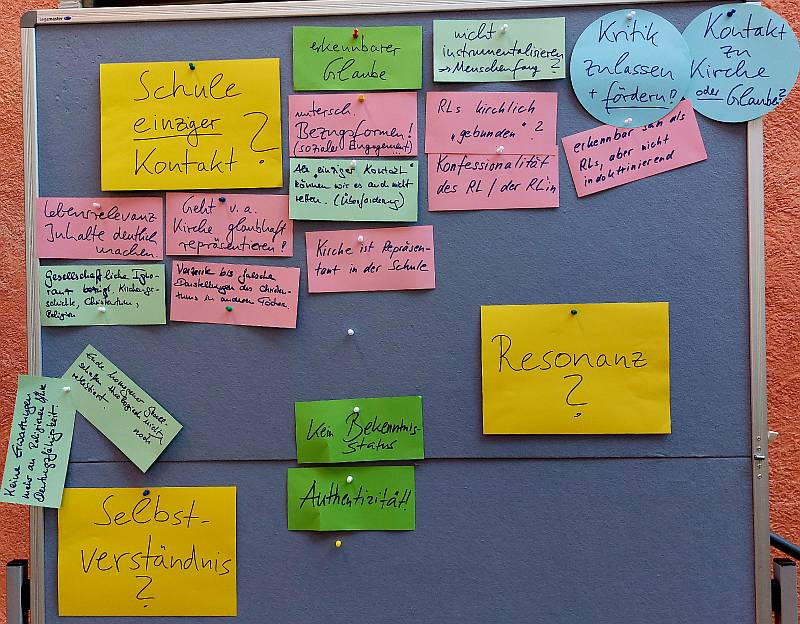 legamaster
Schule
einziger
Kontakt ?
erkennbarer
Glaube
nicht
instrumentalisieren
→ Menschenfang ?
Kritik
zulassen
+ fördern!
Kontakt
zu
Kirche
oder Glaube?
untersch.
Bezugsformen!
(soziales Engagement)
RLs kirchlich
„gebunden" ?
Konfessionalität
des RL / der RL'in
erkennbar sein als
RLs, aber nicht
indoktrinierend
Als „einziger Kontakt"
können wir es auch nicht
retten. (Überforderung)
Lebensrelevanz
Inhalte deutlich
machen.
Geht v.a.
Kirche glaubhaft
repräsentieren?
Kirche ist Repräsen-
tant in der Schule
Gesellschaftliche Igno-
ranz bezügl. Kirchenge-
schichte, Christentum,
Religion
Verzerrte bis falsche
Darstellungen des Christen-
tums in anderen Fächern.
Resonanz
?
Ende homogener Gesell-
schaften
noch
Keine Erwartungen
mehr an Religionen ohne
Deutungsfähigkeit.
Kein Bekenntnis-
status
Authentizität!
Selbst-
verständnis
?